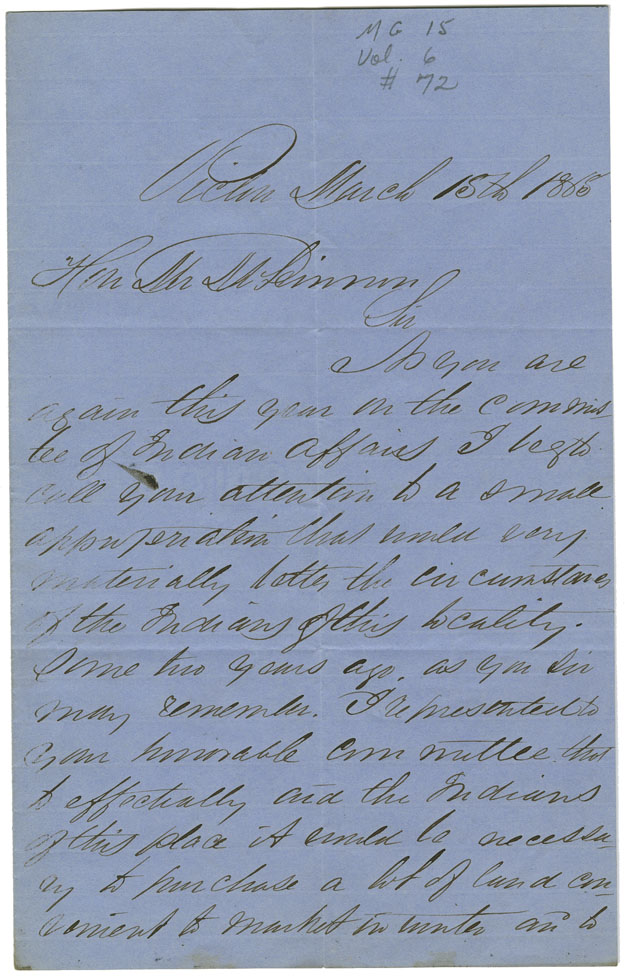 MG 15
Vol. 6
# 72
Pictou March 15th 1865
Hon Mr McKinnon
Sir
As you are
again this year on the commit
tee of Indian Affairs I beg to
call your attention to a small
appropriation that would very
materially better the circumstances
of the Indians of this locality.
Some two years ago, as you Sir
may remember. I represented to
your honorable committee that
to effectually aid the Indians
of this place it would be necessa
ry to purchase a lot of land con
venient to market in winter and to